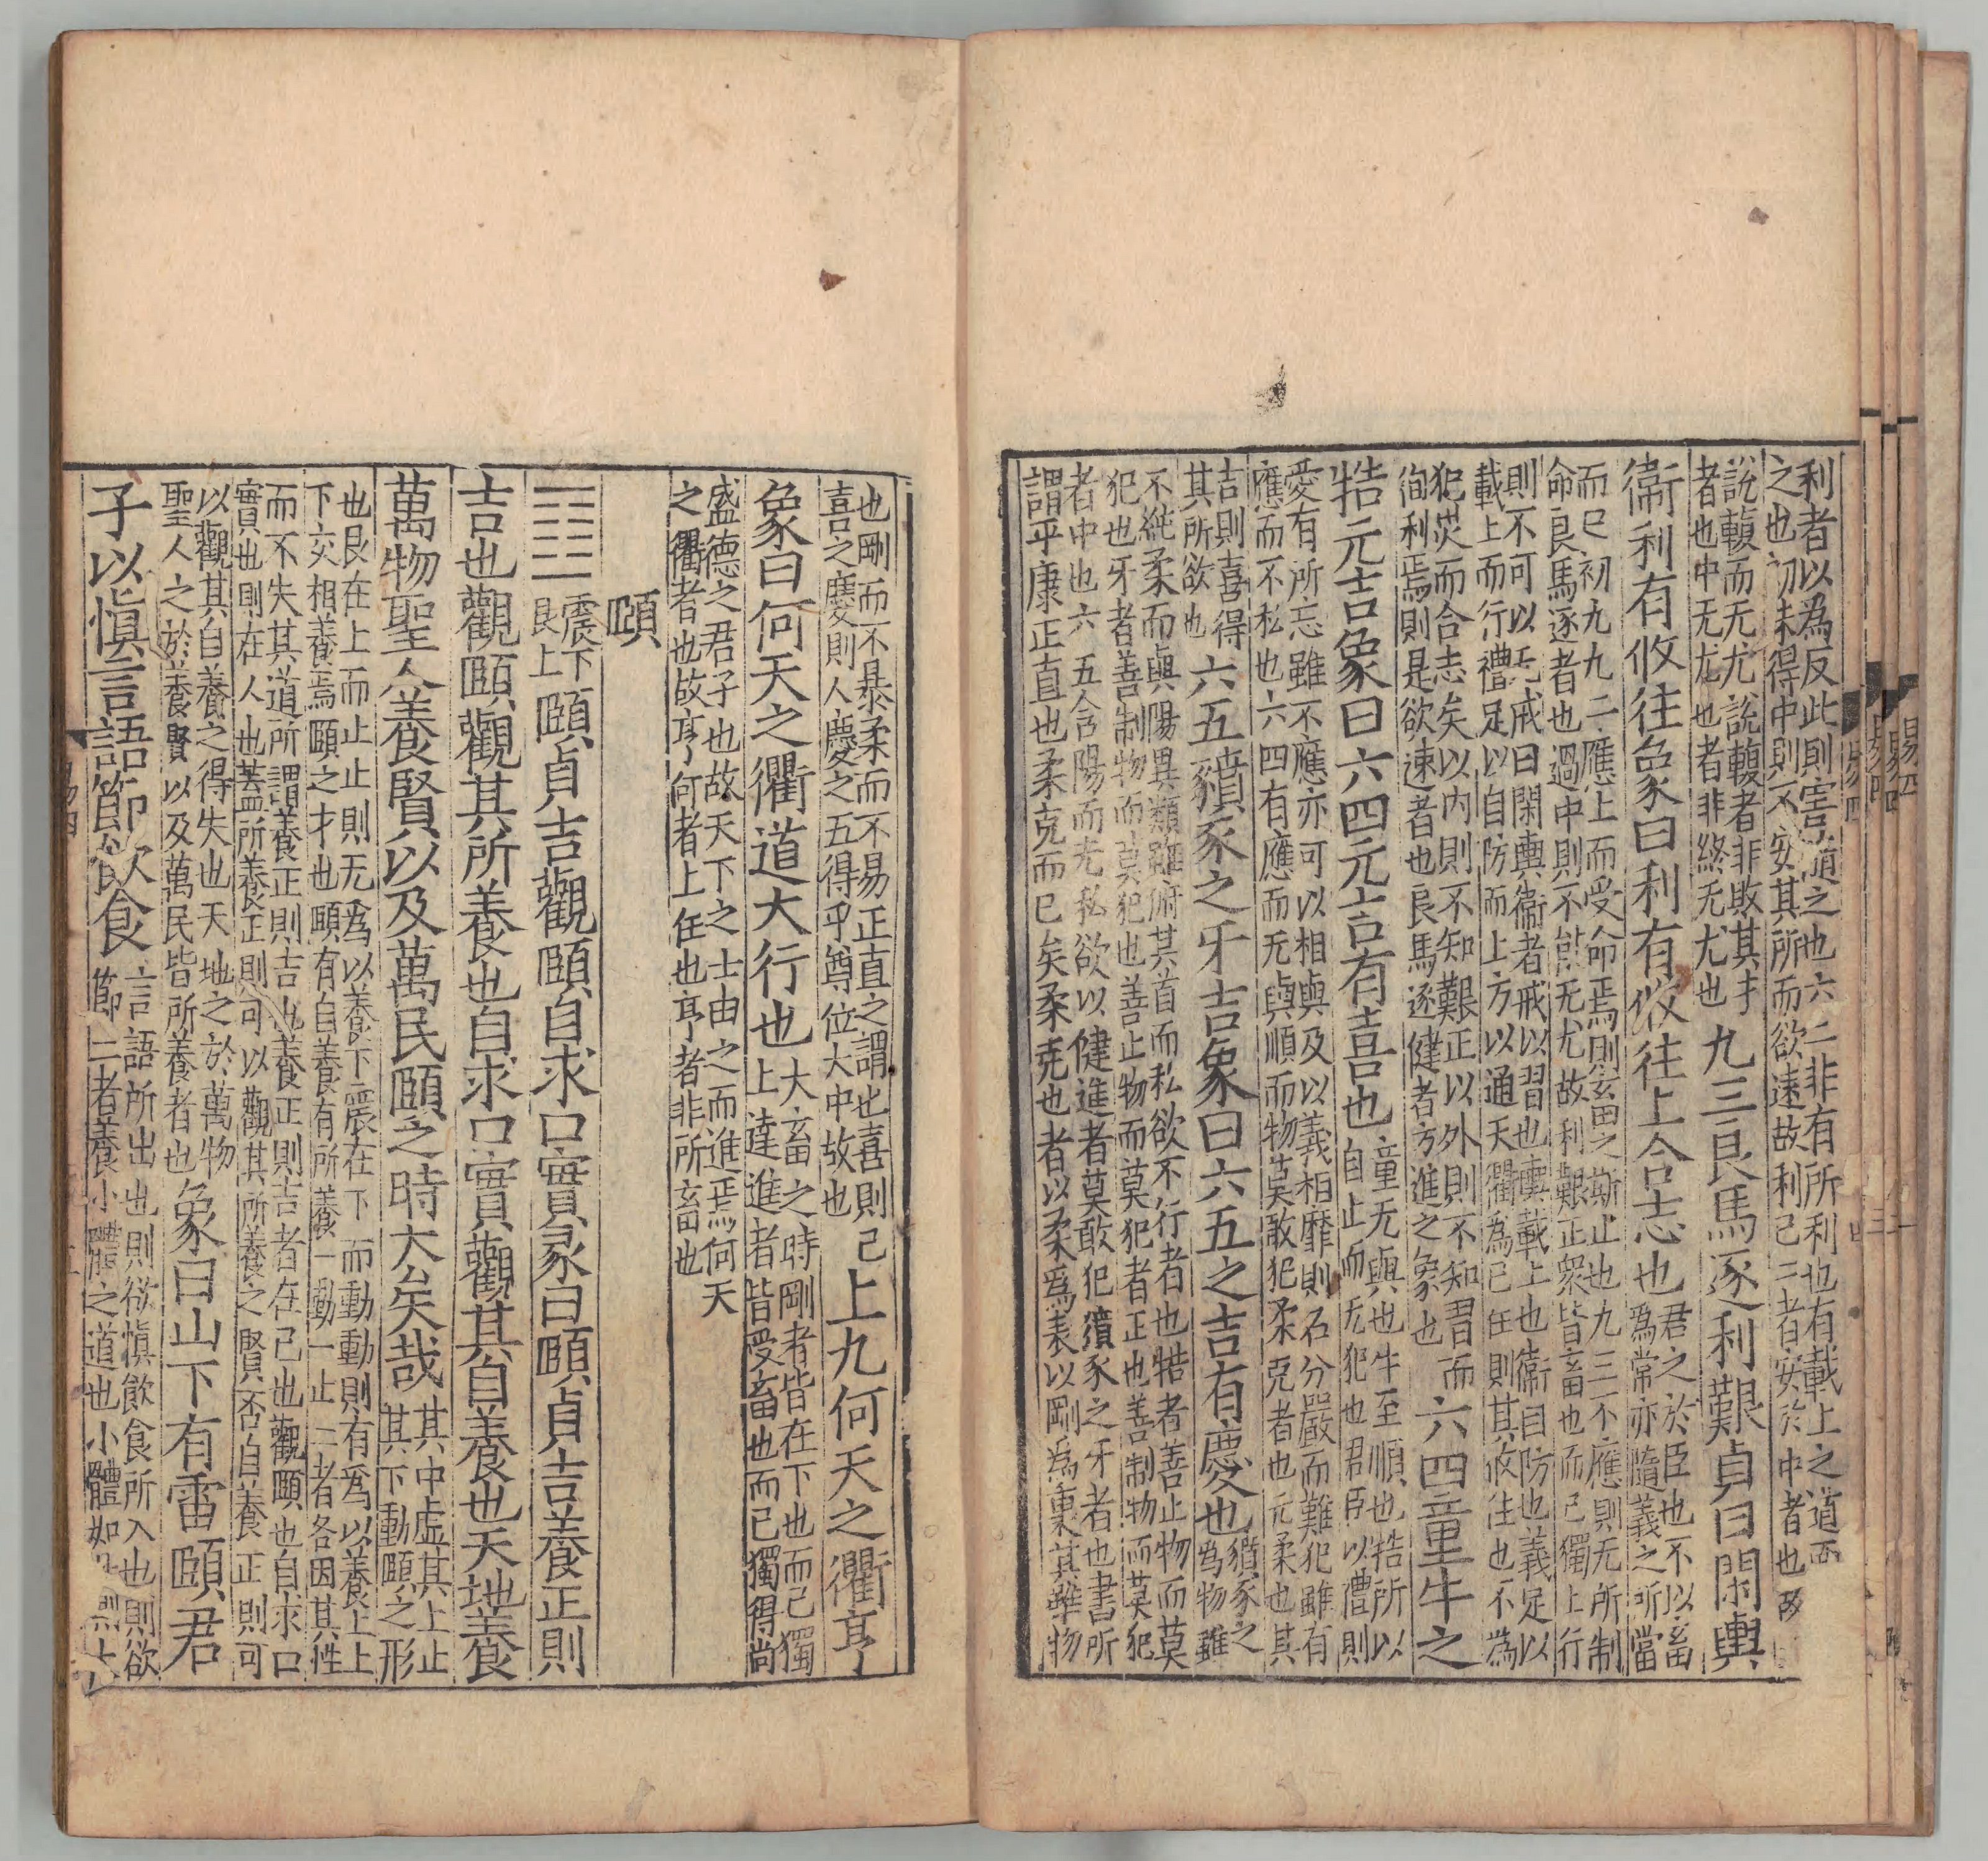 利者以為反此則害隨之也六二非有所利也有載上之道而
之也初未得中則不安其所而欲遠故利己二者安於中者也故
說輹而无尤說輹者非敗其
者也中无尤也者非終无尤也九三良馬逐利艱貞曰閑輿
衞利有攸往象曰利有攸往上合志也君之於臣也不以畜
為常亦隨義之所當
而已初九九二應上而受命焉則玄畜之斯止也九三不應則无所制
命良馬逐者也過中則不能无尤故利艱正衆皆畜也而己獨上行
則不可以无戒曰閑輿衞者戒以習也輿載上也衞曰防也義足以
載上而行禮足以自防而上方以通天衢為己任則其攸往也不為
犯災而合志矣以內則不知艱正以外則不知習而
徇利焉則是欲速者也良馬逐健者方進之象也六四童牛之
牿元吉象曰六四元吉有喜也童无與也牛至順也牿所以
自止而无犯也君臣以禮則
愛有所忘雖不應亦可以相與及以義相靡則石分嚴而難犯雖有
應而不私也六四有應而无與順而物莫敢犯柔克者也元柔也其
吉則喜得
其所欲也六五豶豕之牙吉象曰六五之吉有慶也豶豕之
為物雖
不純柔而與陽異類雖俯其首而私欲不行者也牿者善止物而莫
犯也牙者善制物而莫犯也善止物而莫犯者正也善制物而莫犯
者中也六五含陽而无私欲以健進者莫敢犯豶豕之牙者也書所
謂平康正直也柔克而已矣柔克也者以柔爲表以剛為裏其雖物
也剛而不暴柔而不易正直之謂也喜則己
喜之慶則人慶之五得乎尊位大中故也上九何天之衢亨
象曰何天之衢道大行也大畜之時剛者皆在下也而己獨
上達進者皆受畜也而已獨得尚
盛德之君子也故天下之士由之而進焉何天
之衢者也故亨何者上任也亨者非所畜也
頤
䷚震下
艮上頤貞吉觀頤自求口實彖曰頤貞吉養正則
吉也觀頤觀其所養也自求口實觀其自養也天地養
萬物聖人養賢以及萬民頤之時大矣哉其中虛其上止
其下動頤之形
也艮在上而止止則无為以養下震在下而動動則有為以養上上
下交相養焉頤之才也頤有自養有所養一動一止二者各因其性
而不失其道所謂養正則吉也養正則吉者在己也觀頤也自求口
實也則在人也蓋所養正則可以觀其所養之賢否自養正則可
以觀其自養之得失也天地之於萬物
聖人之於養賢以及萬民皆所養者也象曰山下有雷頤君
子以愼言語節飲食言語所出也則欲愼飲食所入也則欲
節二者養小體之道也小體如